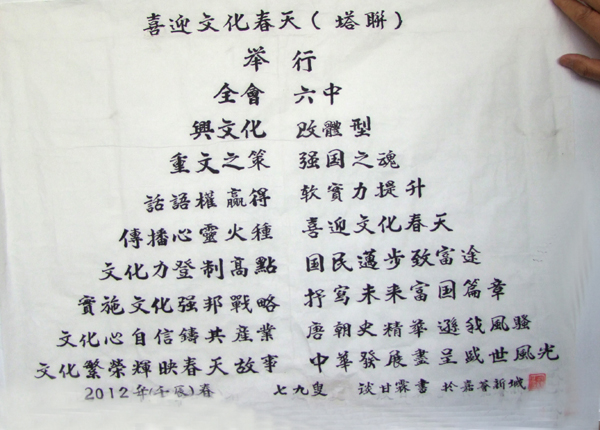 喜迎文化春天（塔聯）
举 行
全會 六中
興文化 改體型
重文之策 强国之魂
話語權贏得 软實力提升
傳播心靈火種 喜迎文化春天
文化力登制高點 国民邁步致富途
實施文化强邦戰略 抒寫未来富国篇章
文化心自信鑄共産業 唐朝史精華遜我風騷
文化繁榮輝映春天故事 中華發展盡呈盛世風光
2012年(壬辰)春 七九叟 談甘霖書 於嘉荟新城